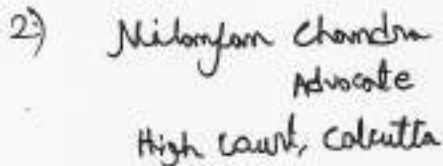 2)
Nilanjan Chandra
Advocate
High Court, Calcutta